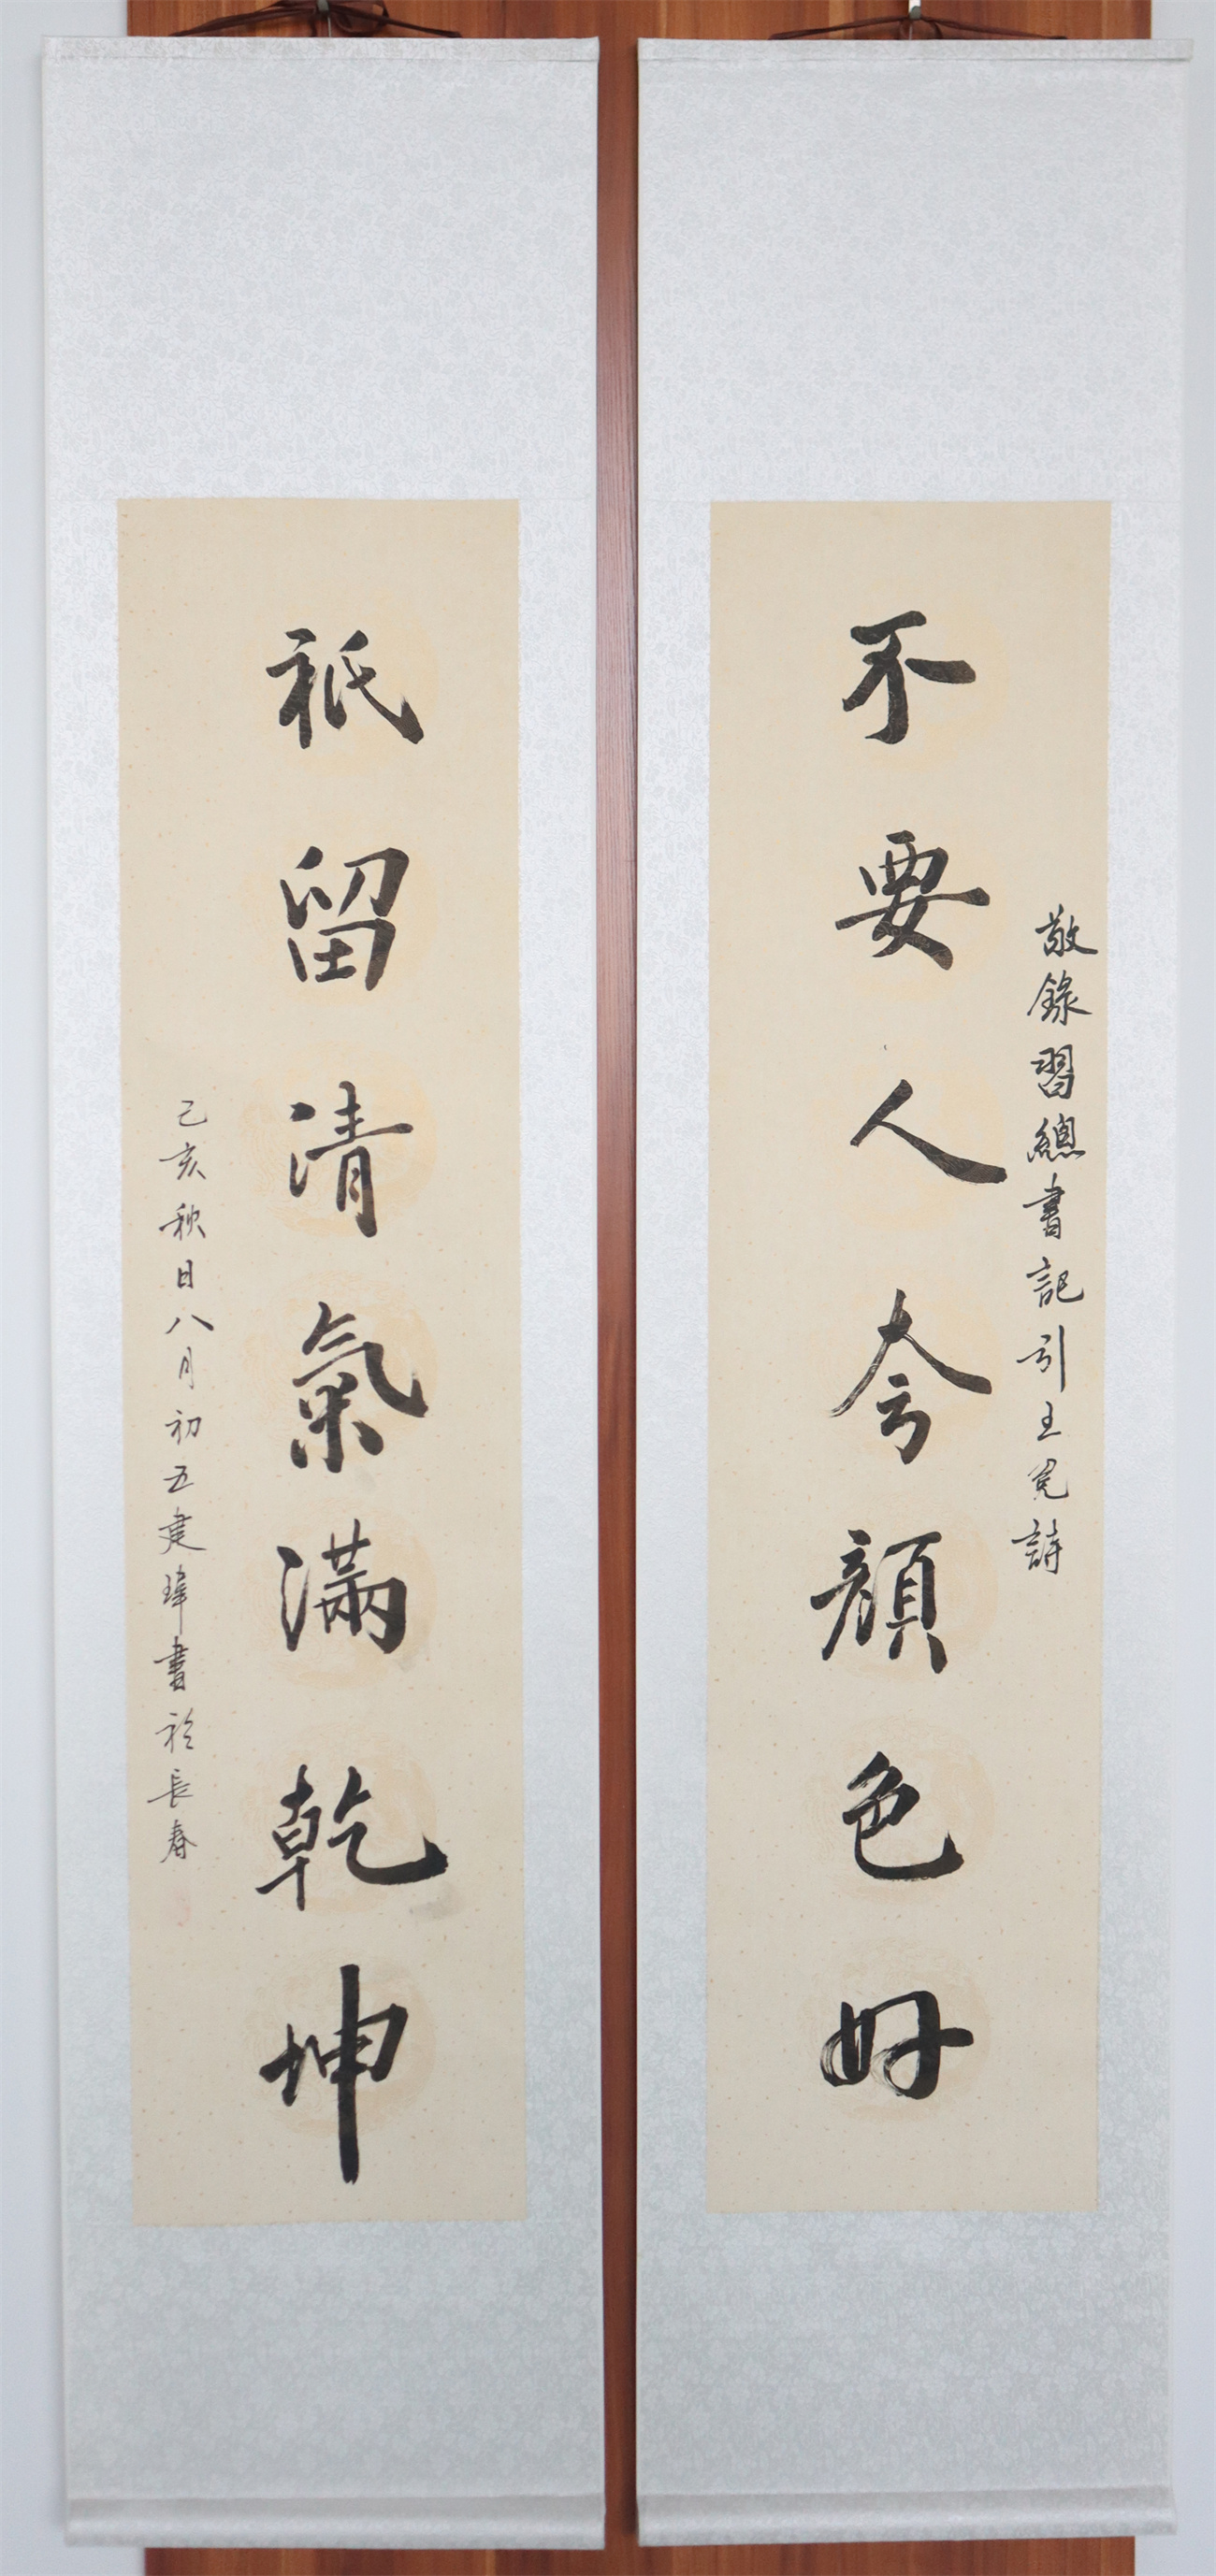 敬錄習總書記引王冕詩
不要人夸顏色好
祇留清氣滿乾坤
己亥秋日八月初五建瑋書於長春